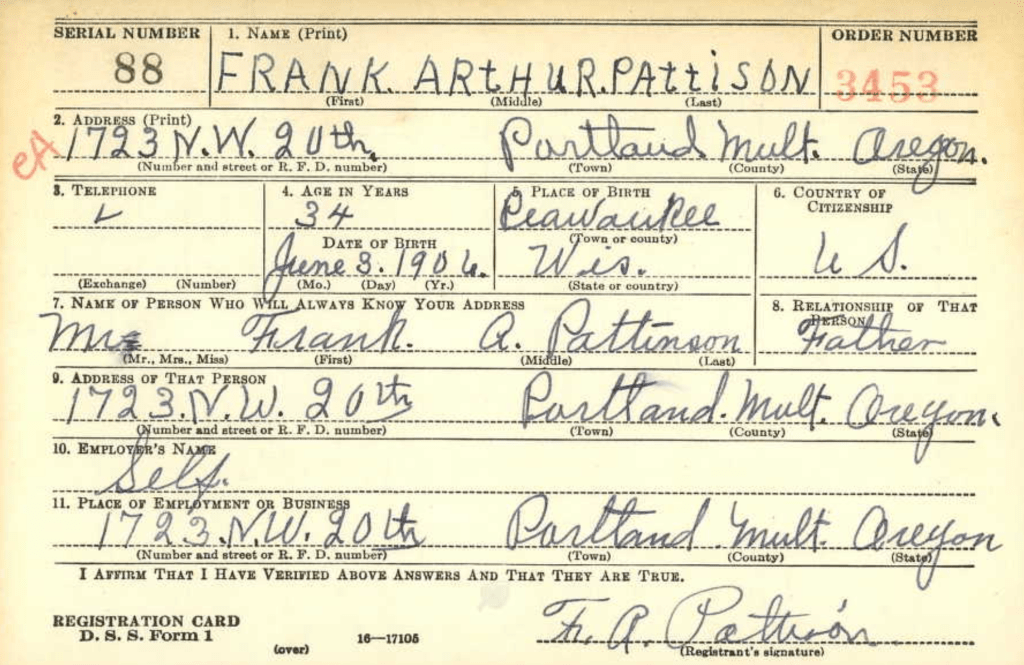 SERIAL NUMBER 1. NAME (Print) ORDER NUMBER
88 FRANK. ARTHUR. PATTISON 3453
(First) (Middle) (Last)
2. ADDRESS (Print)
eA 1723 N.W. 20th, Portland Mult. Oregon.
(Number and street or R. F. D. number) (Town) (County) (State)
3. TELEPHONE 4. AGE IN YEARS 5. PLACE OF BIRTH 6. COUNTRY OF CITIZENSHIP
34 Peawaukee
DATE OF BIRTH (Town or county)
June 3. 1906. Wis. U S.
(Exchange) (Number) (Mo.) (Day) (Yr.) (State or country)
7. NAME OF PERSON WHO WILL ALWAYS KNOW YOUR ADDRESS 8. RELATIONSHIP OF THAT PERSON
Frank. A. Pattinson Father
(Mr., Mrs., Miss) (First) (Middle) (Last)
9. ADDRESS OF THAT PERSON
1723. N.W. 20th Portland. Mult. Oregon.
(Number and street or R. F. D. number) (Town) (County) (State)
10. EMPLOYER'S NAME
Self.
11. PLACE OF EMPLOYMENT OR BUSINESS
1723. N.W. 20th Portland Mult. Oregon
(Number and street or R. F. D. number) (Town) (County) (State)
I AFFIRM THAT I HAVE VERIFIED ABOVE ANSWERS AND THAT THEY ARE TRUE.
REGISTRATION CARD
D. S. S. Form 1 16—17105 F. A. Pattison.
(over) (Registrant's signature)